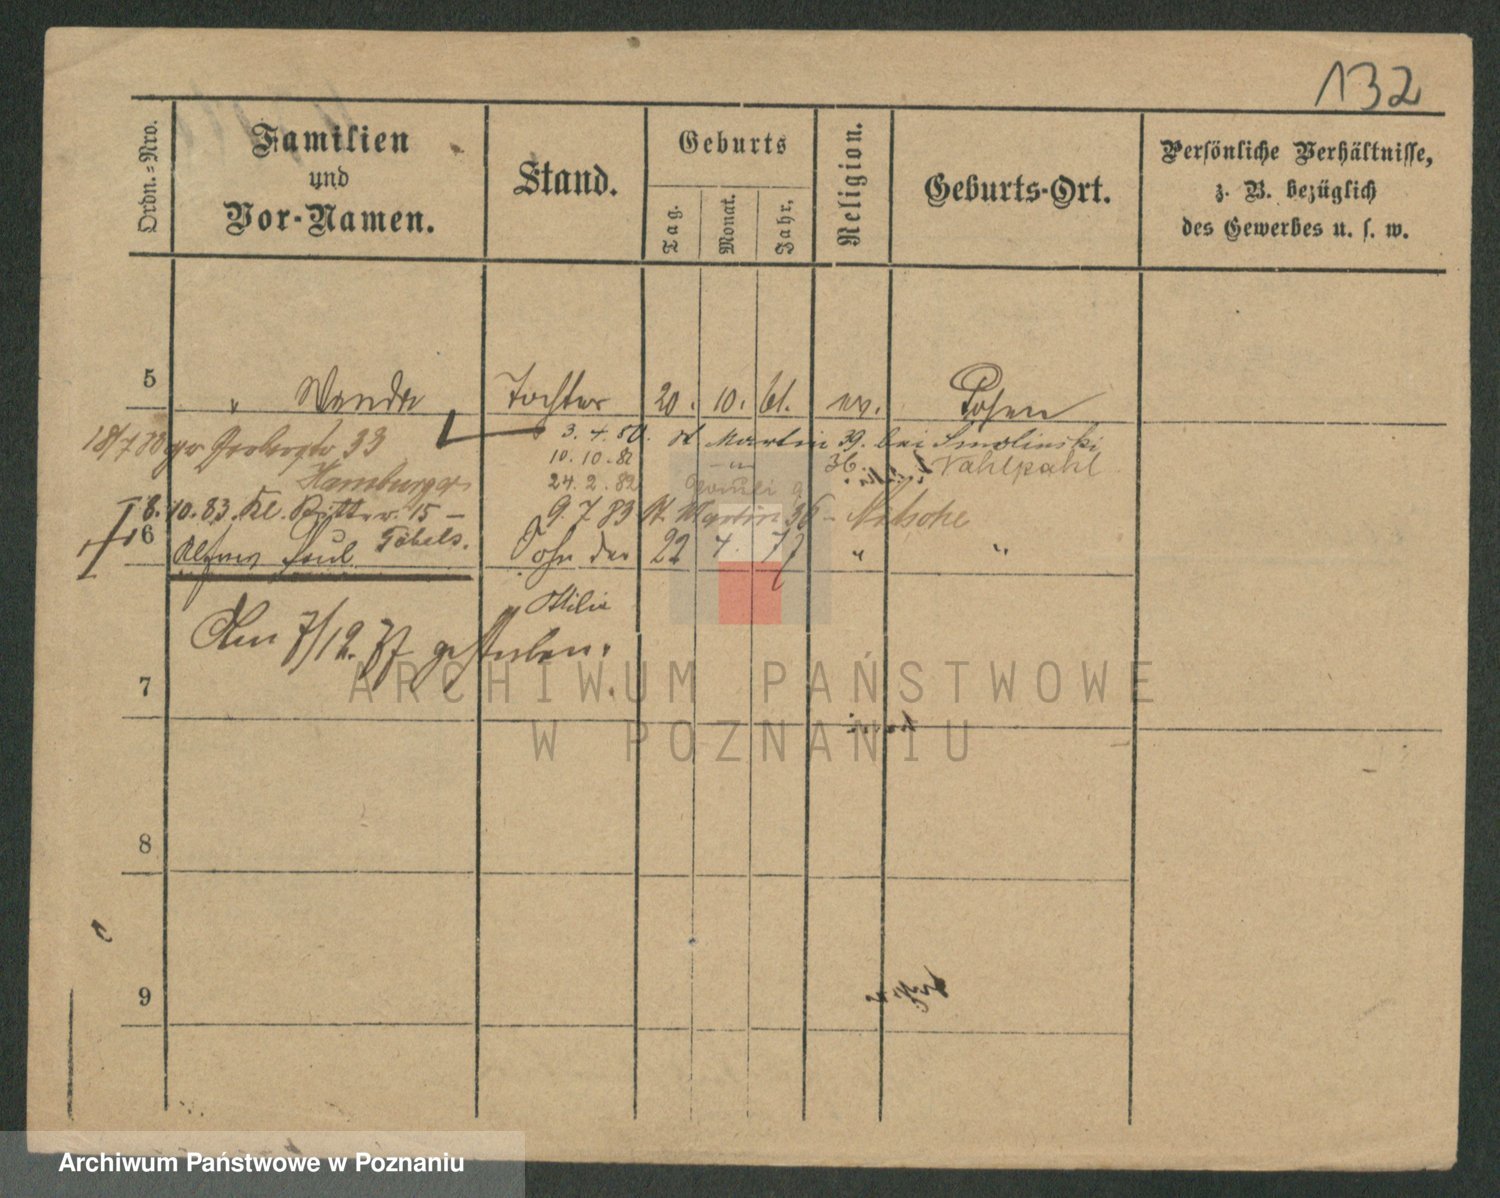 132
Ordn.=Nro.
Familien
und
Vor-Namen.
Stand.
Geburts
Tag.
Monat.
Jahr.
Religion.
Geburts-Ort.
Persönliche Verhältnisse,
z. B. bezüglich
des Gewerbes u. s. w.
5 " Wanda Tochter 20. 10. 61. ev. Posen
18/7 80 33 3. 4. 80. St Martin 39. bei Smolinski
10. 10. 81 36. Vahlpahl
Hamburger 24. 2. 82
8. 10. 83. Kl. Ritterr. 15 — 9. 7. 83 St. Martin 36 - Nitsche
6 Paul Sohn der 22 4. 77 " "
Ottilie
7/12. 77 gestorben.
7
8
9
ARCHIWUM PAŃSTWOWE
W POZNANIU
Archiwum Państwowe w Poznaniu